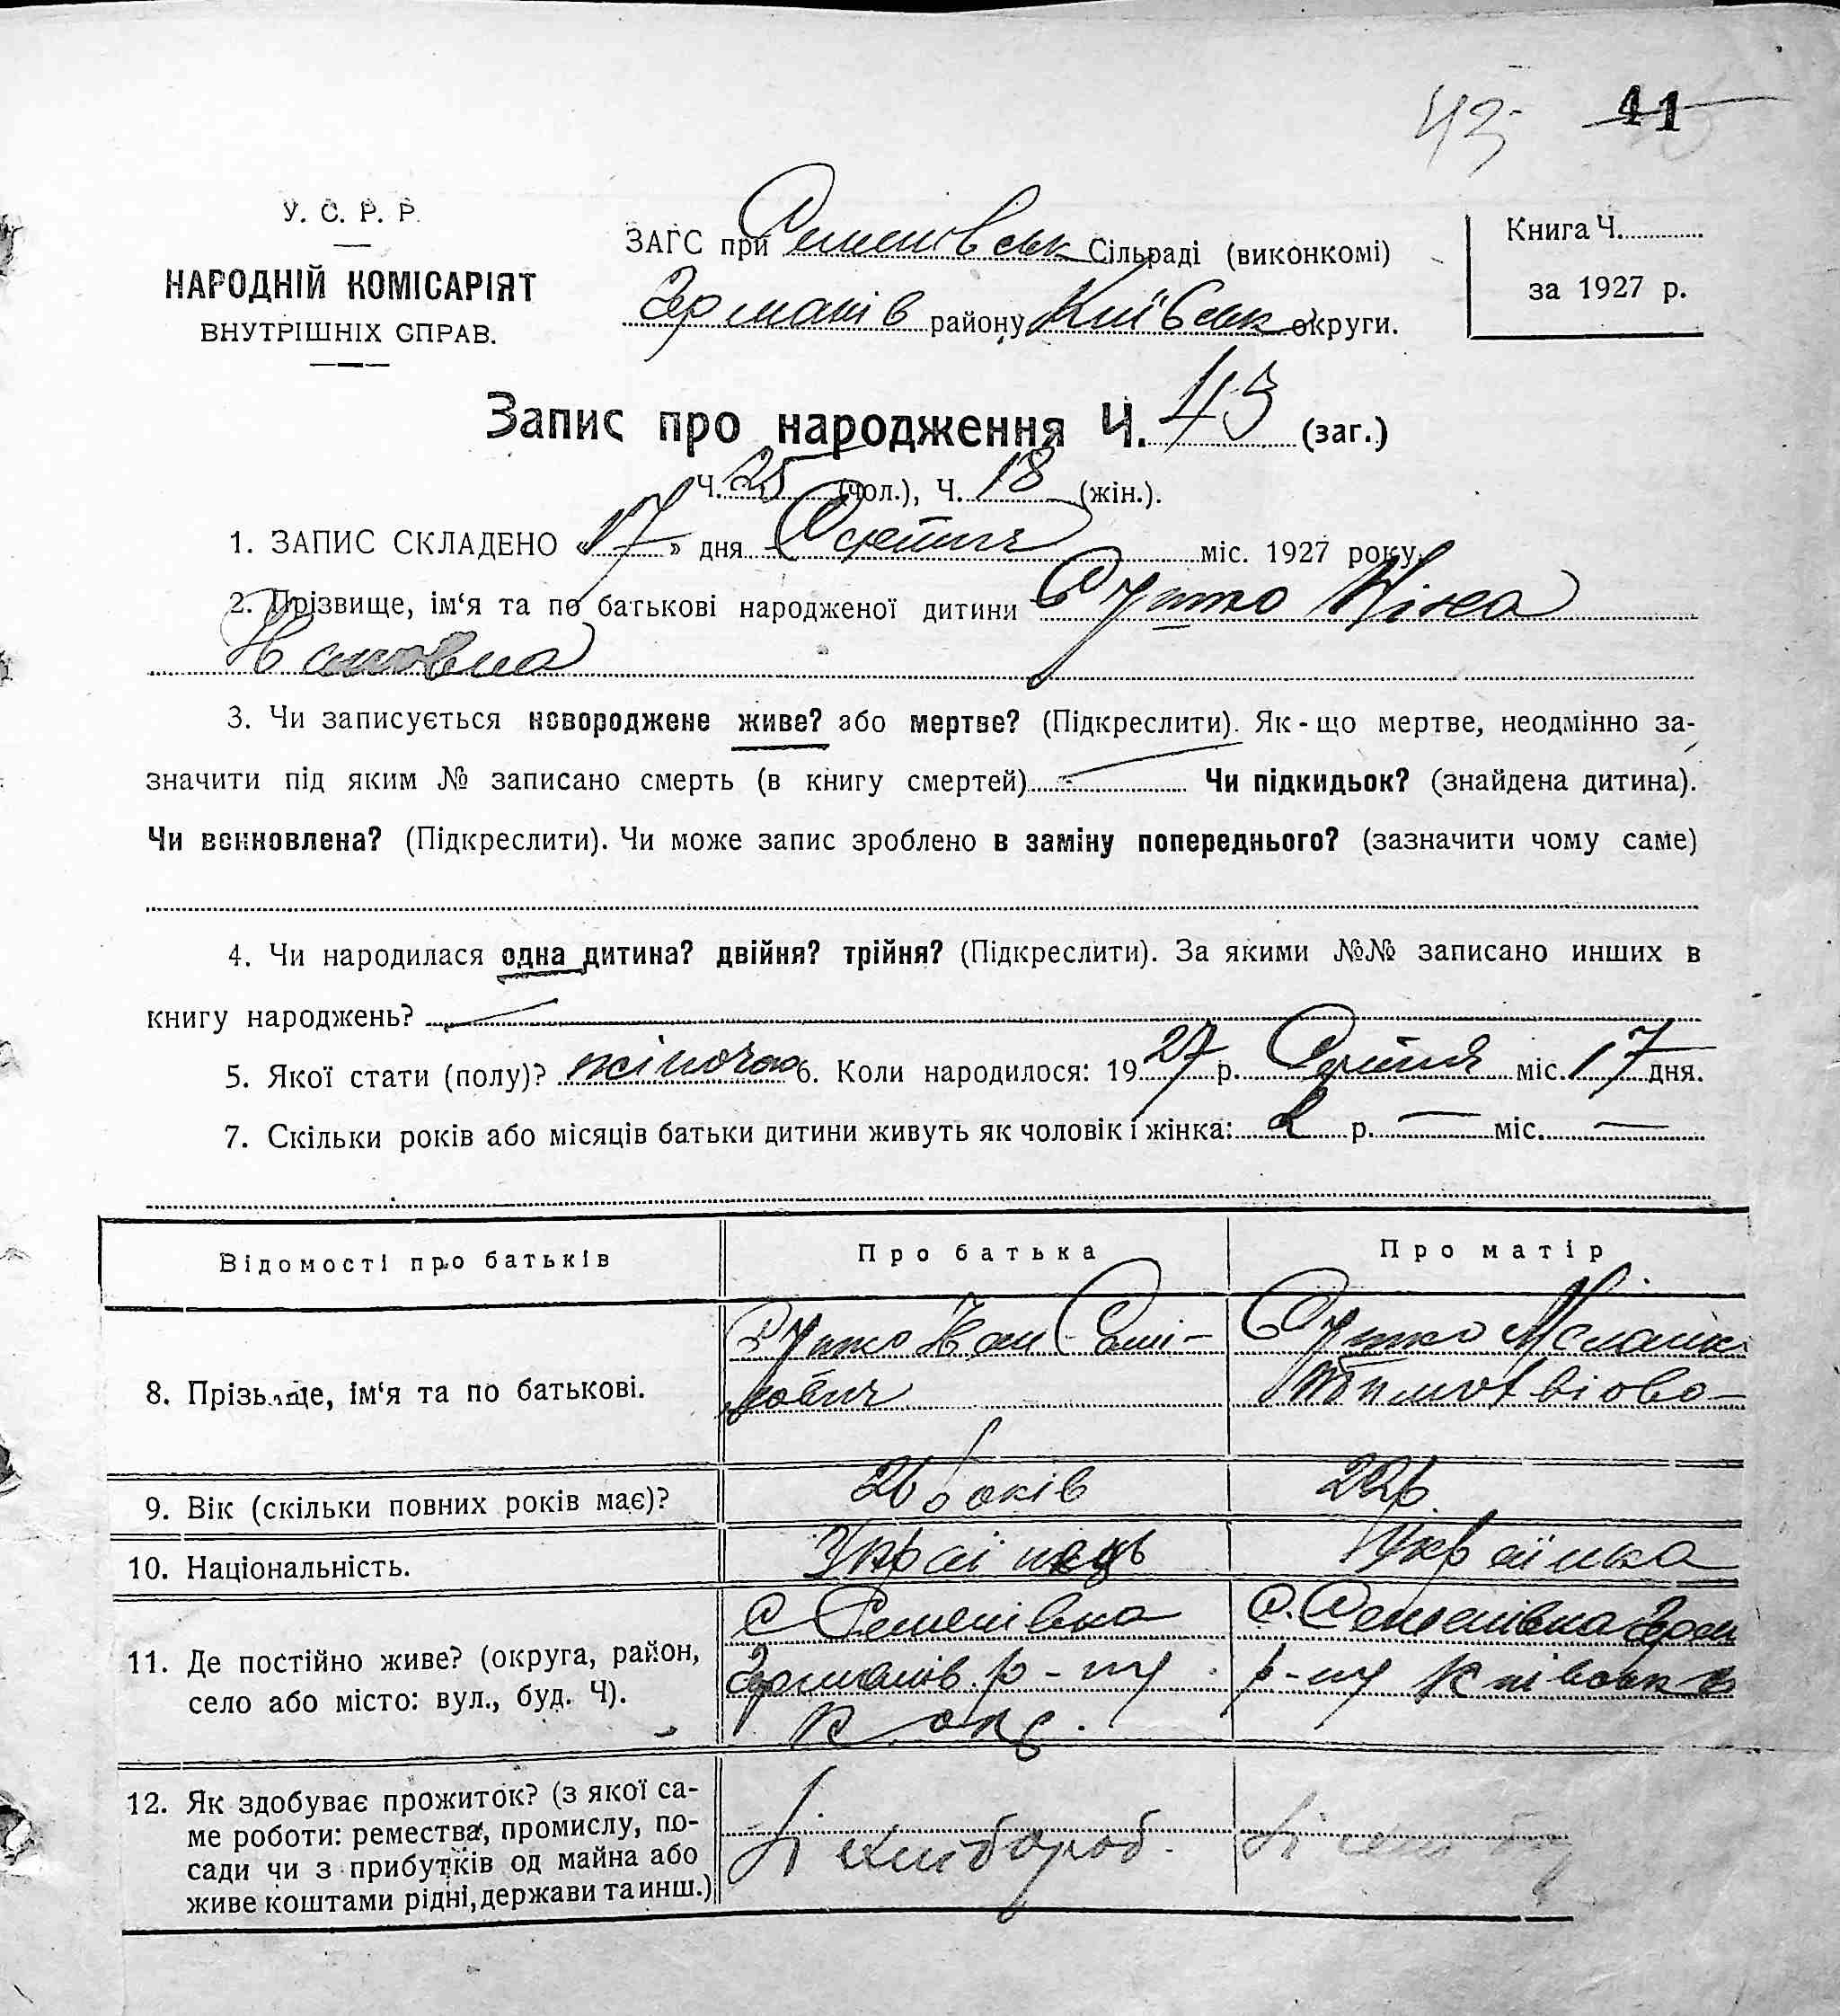 43 41
У. С. Р. Р.
НАРОДНІЙ КОМІСАРІЯТ
ВНУТРІШНІХ СПРАВ.
ЗАГС при Семенівськ Сільраді (виконкомі)
Германів району Київськ округи.
Книга Ч.
за 1927 р.
Запис про народження Ч. 43 (заг.)
Ч. 25 (чол.), Ч. 18 (жін.).
1. ЗАПИС СКЛАДЕНО « 17 » дня Серпня міс. 1927 року.
2. Прізвище, ім‘я та по батькові народженої дитини Ніна
Івановна
3. Чи записується новороджене живе? або мертве? (Підкреслити). Як-що мертве, неодмінно за-
значити під яким № записано смерть (в книгу смертей) Чи підкидьок? (знайдена дитина).
Чи всиновлена? (Підкреслити). Чи може запис зроблено в заміну попереднього? (зазначити чому саме)
4. Чи народилася одна дитина? двійня? трійня? (Підкреслити). За якими №№ записано инших в
книгу народжень?
5. Якої стати (полу)? жіноча 6. Коли народилося: 1927 р. Серпня міс. 17 дня.
7. Скільки років або місяців батьки дитини живуть як чоловік і жінка: 2 р. — міс. —
Відомості про батьків Про батька Про матір
8. Прізвище, ім‘я та по батькові.
9. Вік (скільки повних років має)? 26 років 22 р.
10. Національність. Українець Українка
11. Де постійно живе? (округа, район,
село або місто: вул., буд. Ч).
с Семенівка
Германів. р-ну
К. окр.
с. Семенівка Герм
р-ну Київськ
12. Як здобуває прожиток? (з якої са-
ме роботи: ремества, промислу, по-
сади чи з прибутків од майна або
живе коштами рідні, держави та инш.)